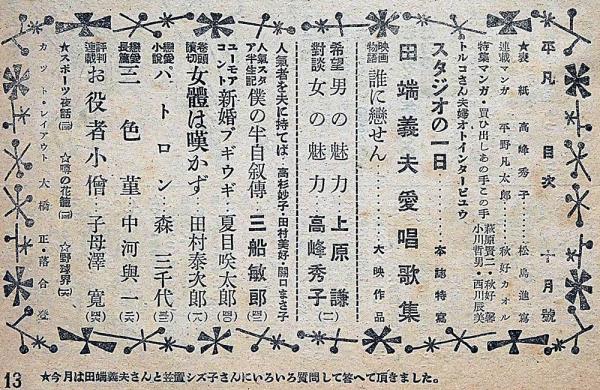 平凡 目次 十一月號
★表紙 高峰秀子‥‥‥松島進寫
連載マンガ 平野凡太郎‥‥秋好カオル
特集マンガ・買ひ出しあの手この手 萩原賢二・秋好馨 小川哲男・西川辰美
トルコさん夫婦オトインタービユウ
スタジオの一日‥‥‥本誌特寫
田端義夫愛唱歌集
映画物語 誰に戀せん‥‥‥大映作品
希望對談 男の魅力‥‥上原謙
女の魅力 高峰秀子(二)
人氣者を夫に持てば‥高杉妙子・田村美好・關口まさ子
人氣スタア半生記 僕の半自叙傳‥三船敏郎
ユーモアコント 新婚ブギウギ‥夏目咲太郎
卷頭讀切 女體は嘆かず‥田村泰次郎(一八)
戀愛小說 パトロン‥‥森三千代
戀愛長篇 三色菫‥‥中河與一
評判連載 お役者小僧‥子母澤寛
★スポーツ夜話 ☆噂の花籠 ☆野球界
カット・レイアウト 大橋正・落合登
13 ★今月は田端義夫さんと笠置シズ子さんにいろいろ質問して答へて頂きました。